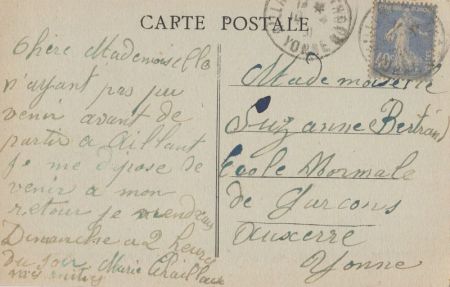 CARTE POSTALE
YONNE
Chère Mademoiselle
n'ayant pas pu
venir avant de
partir a Aillant
je me dispose de
venir a mon
retour je viendrai
Dimanche a 2 heures
du soir Marie
Mademoiselle
Suzanne Bertrand
Ecole Normale
de Garcons
Auxerre
Yonne